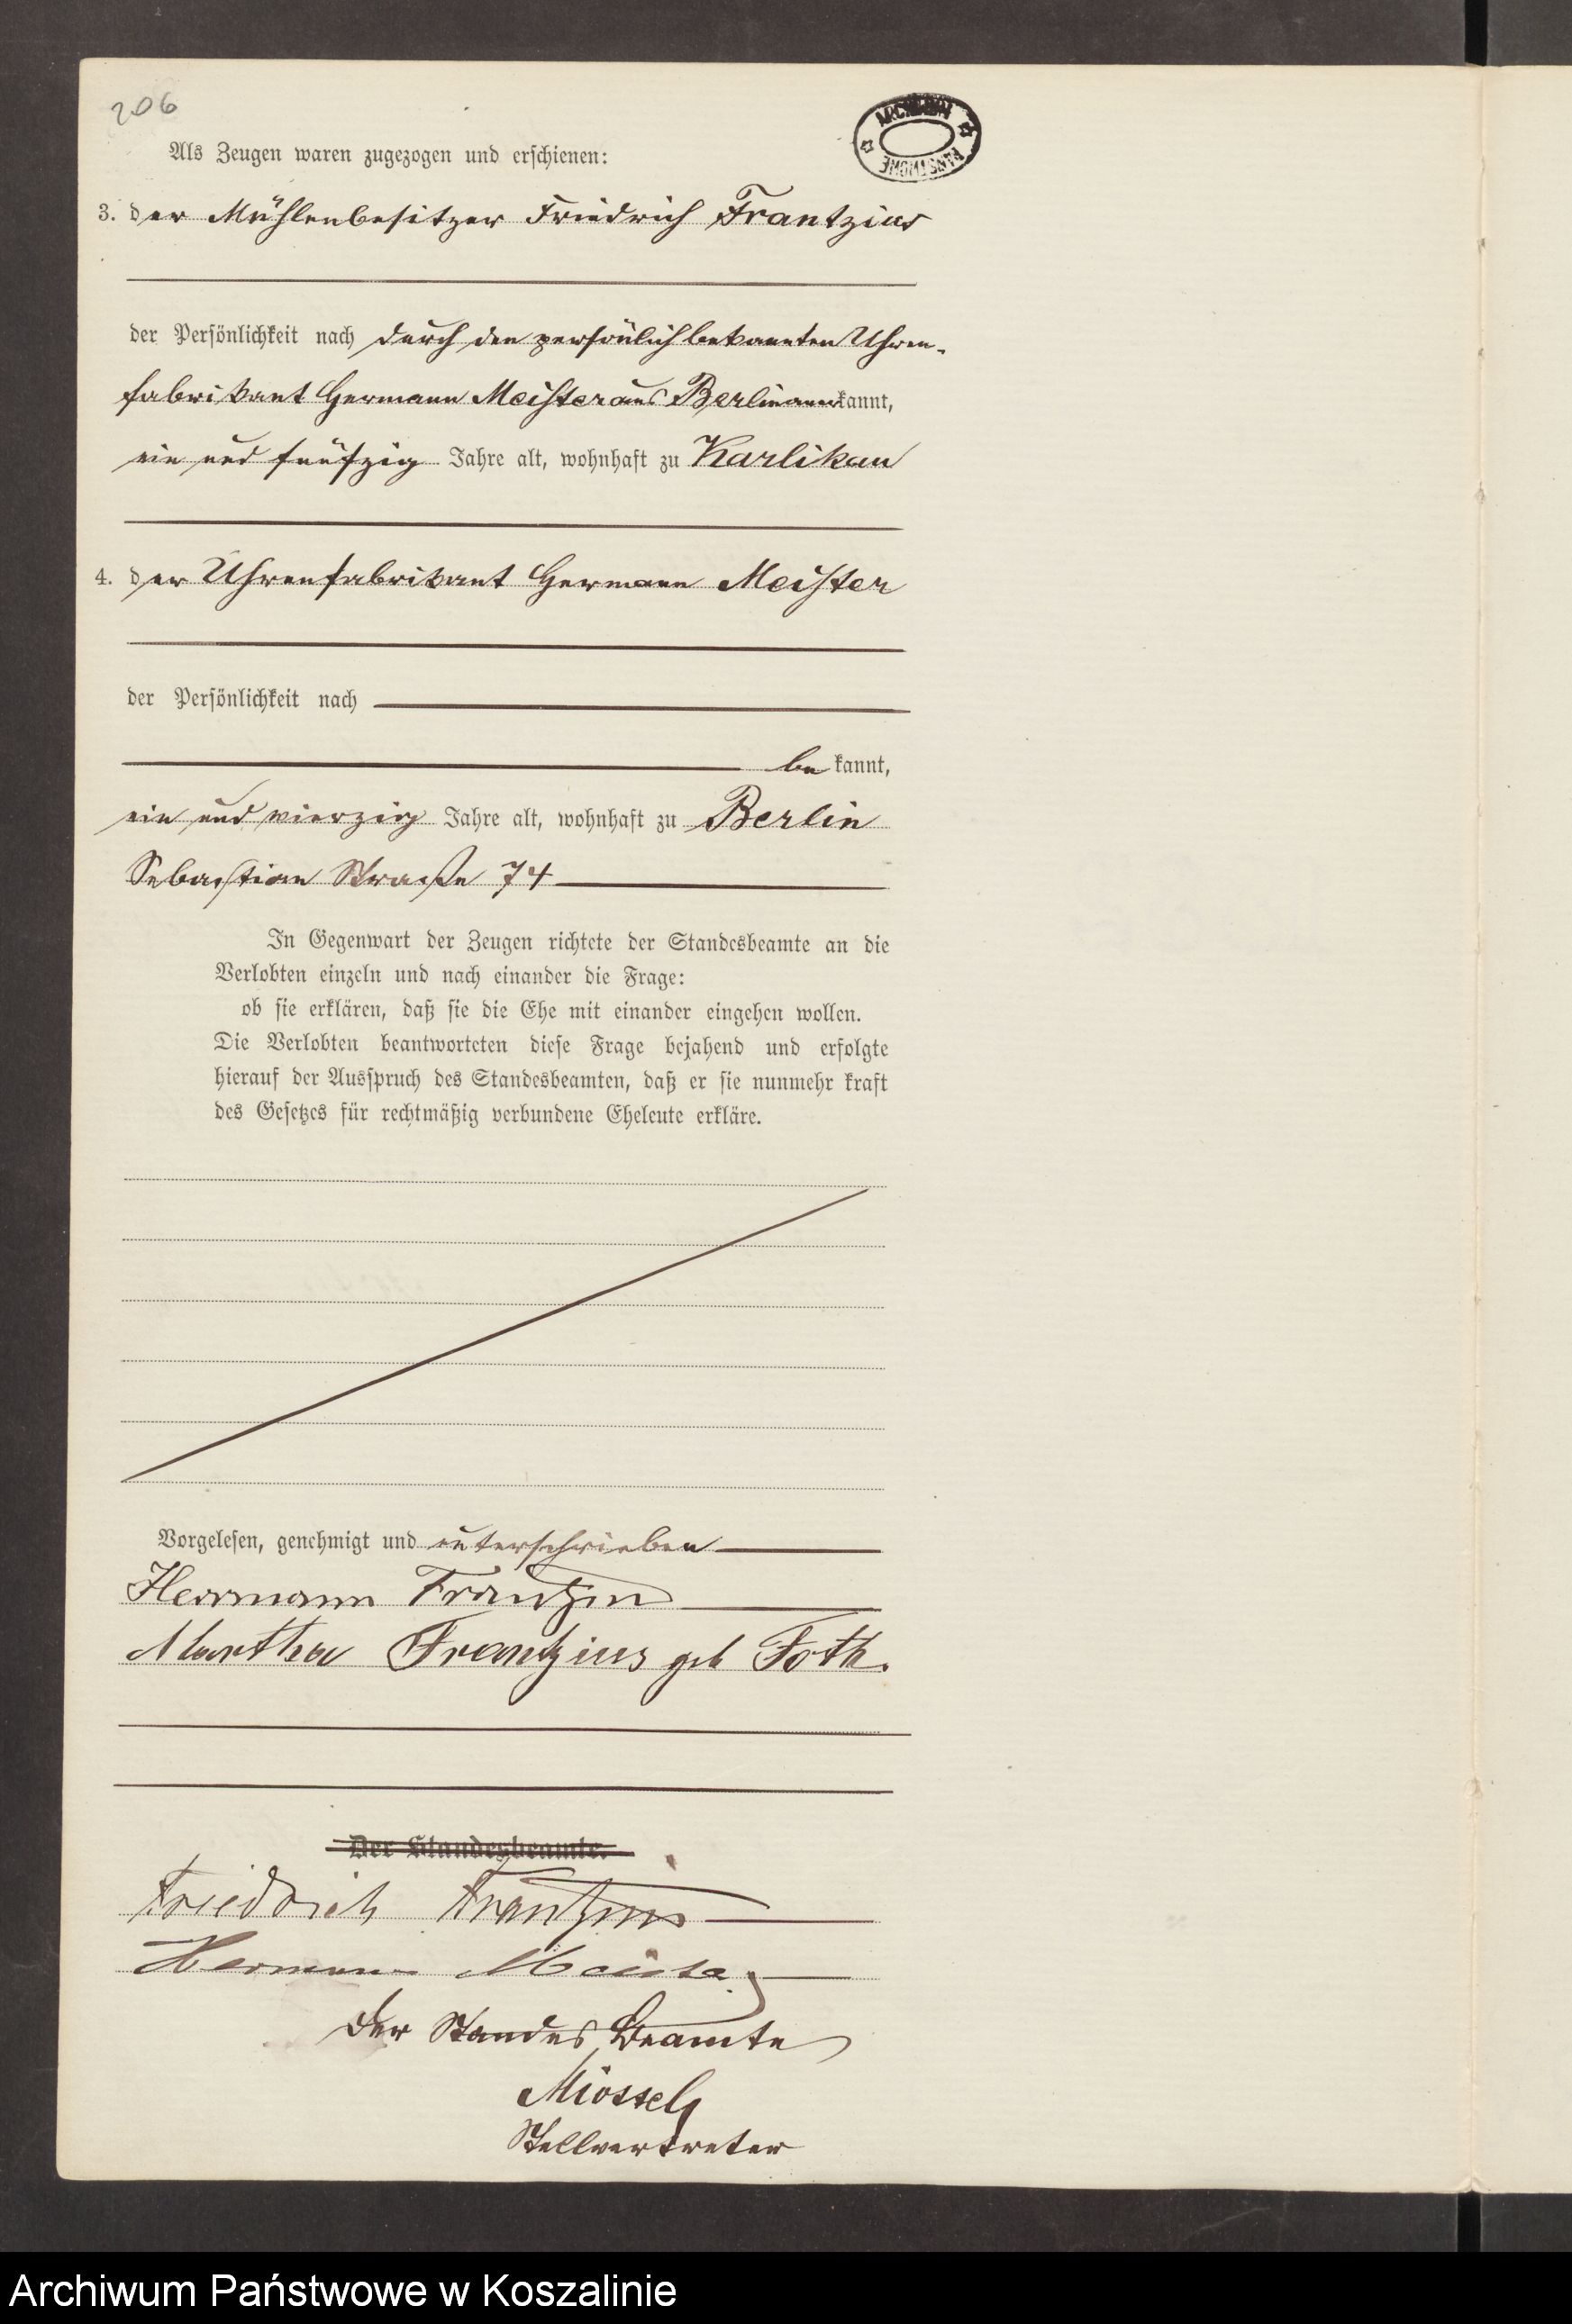 206
ARCHIWUM PAŃSTWOWE
Als Zeugen waren zugezogen und erschienen:
3. der Mühlenbesitzer Friedrich Frantzius
der Persönlichkeit nach durch den persönlich bekannten Uhren-
fabrikant Hermann Meister aus Berlin anerkannt,
ein und fünfzig Jahre alt, wohnhaft zu Karlikau
4. der Uhrenfabrikant Hermann Meister
der Persönlichkeit nach
bekannt,
ein und vierzig Jahre alt, wohnhaft zu Berlin
Sebastian Straße 74
In Gegenwart der Zeugen richtete der Standesbeamte an die
Verlobten einzeln und nach einander die Frage:
ob sie erklären, daß sie die Ehe mit einander eingehen wollen.
Die Verlobten beantworteten diese Frage bejahend und erfolgte
hierauf der Ausspruch des Standesbeamten, daß er sie nunmehr kraft
des Gesetzes für rechtmäßig verbundene Eheleute erkläre.
Vorgelesen, genehmigt und unterschrieben
Herrmann Frantzius
Martha Frantzius geb Foth.
Der Standesbeamte.
Friedrich Frantzius
Hermann Meister
Der Standes Beamte
Stellvertreter
Archiwum Państwowe w Koszalinie